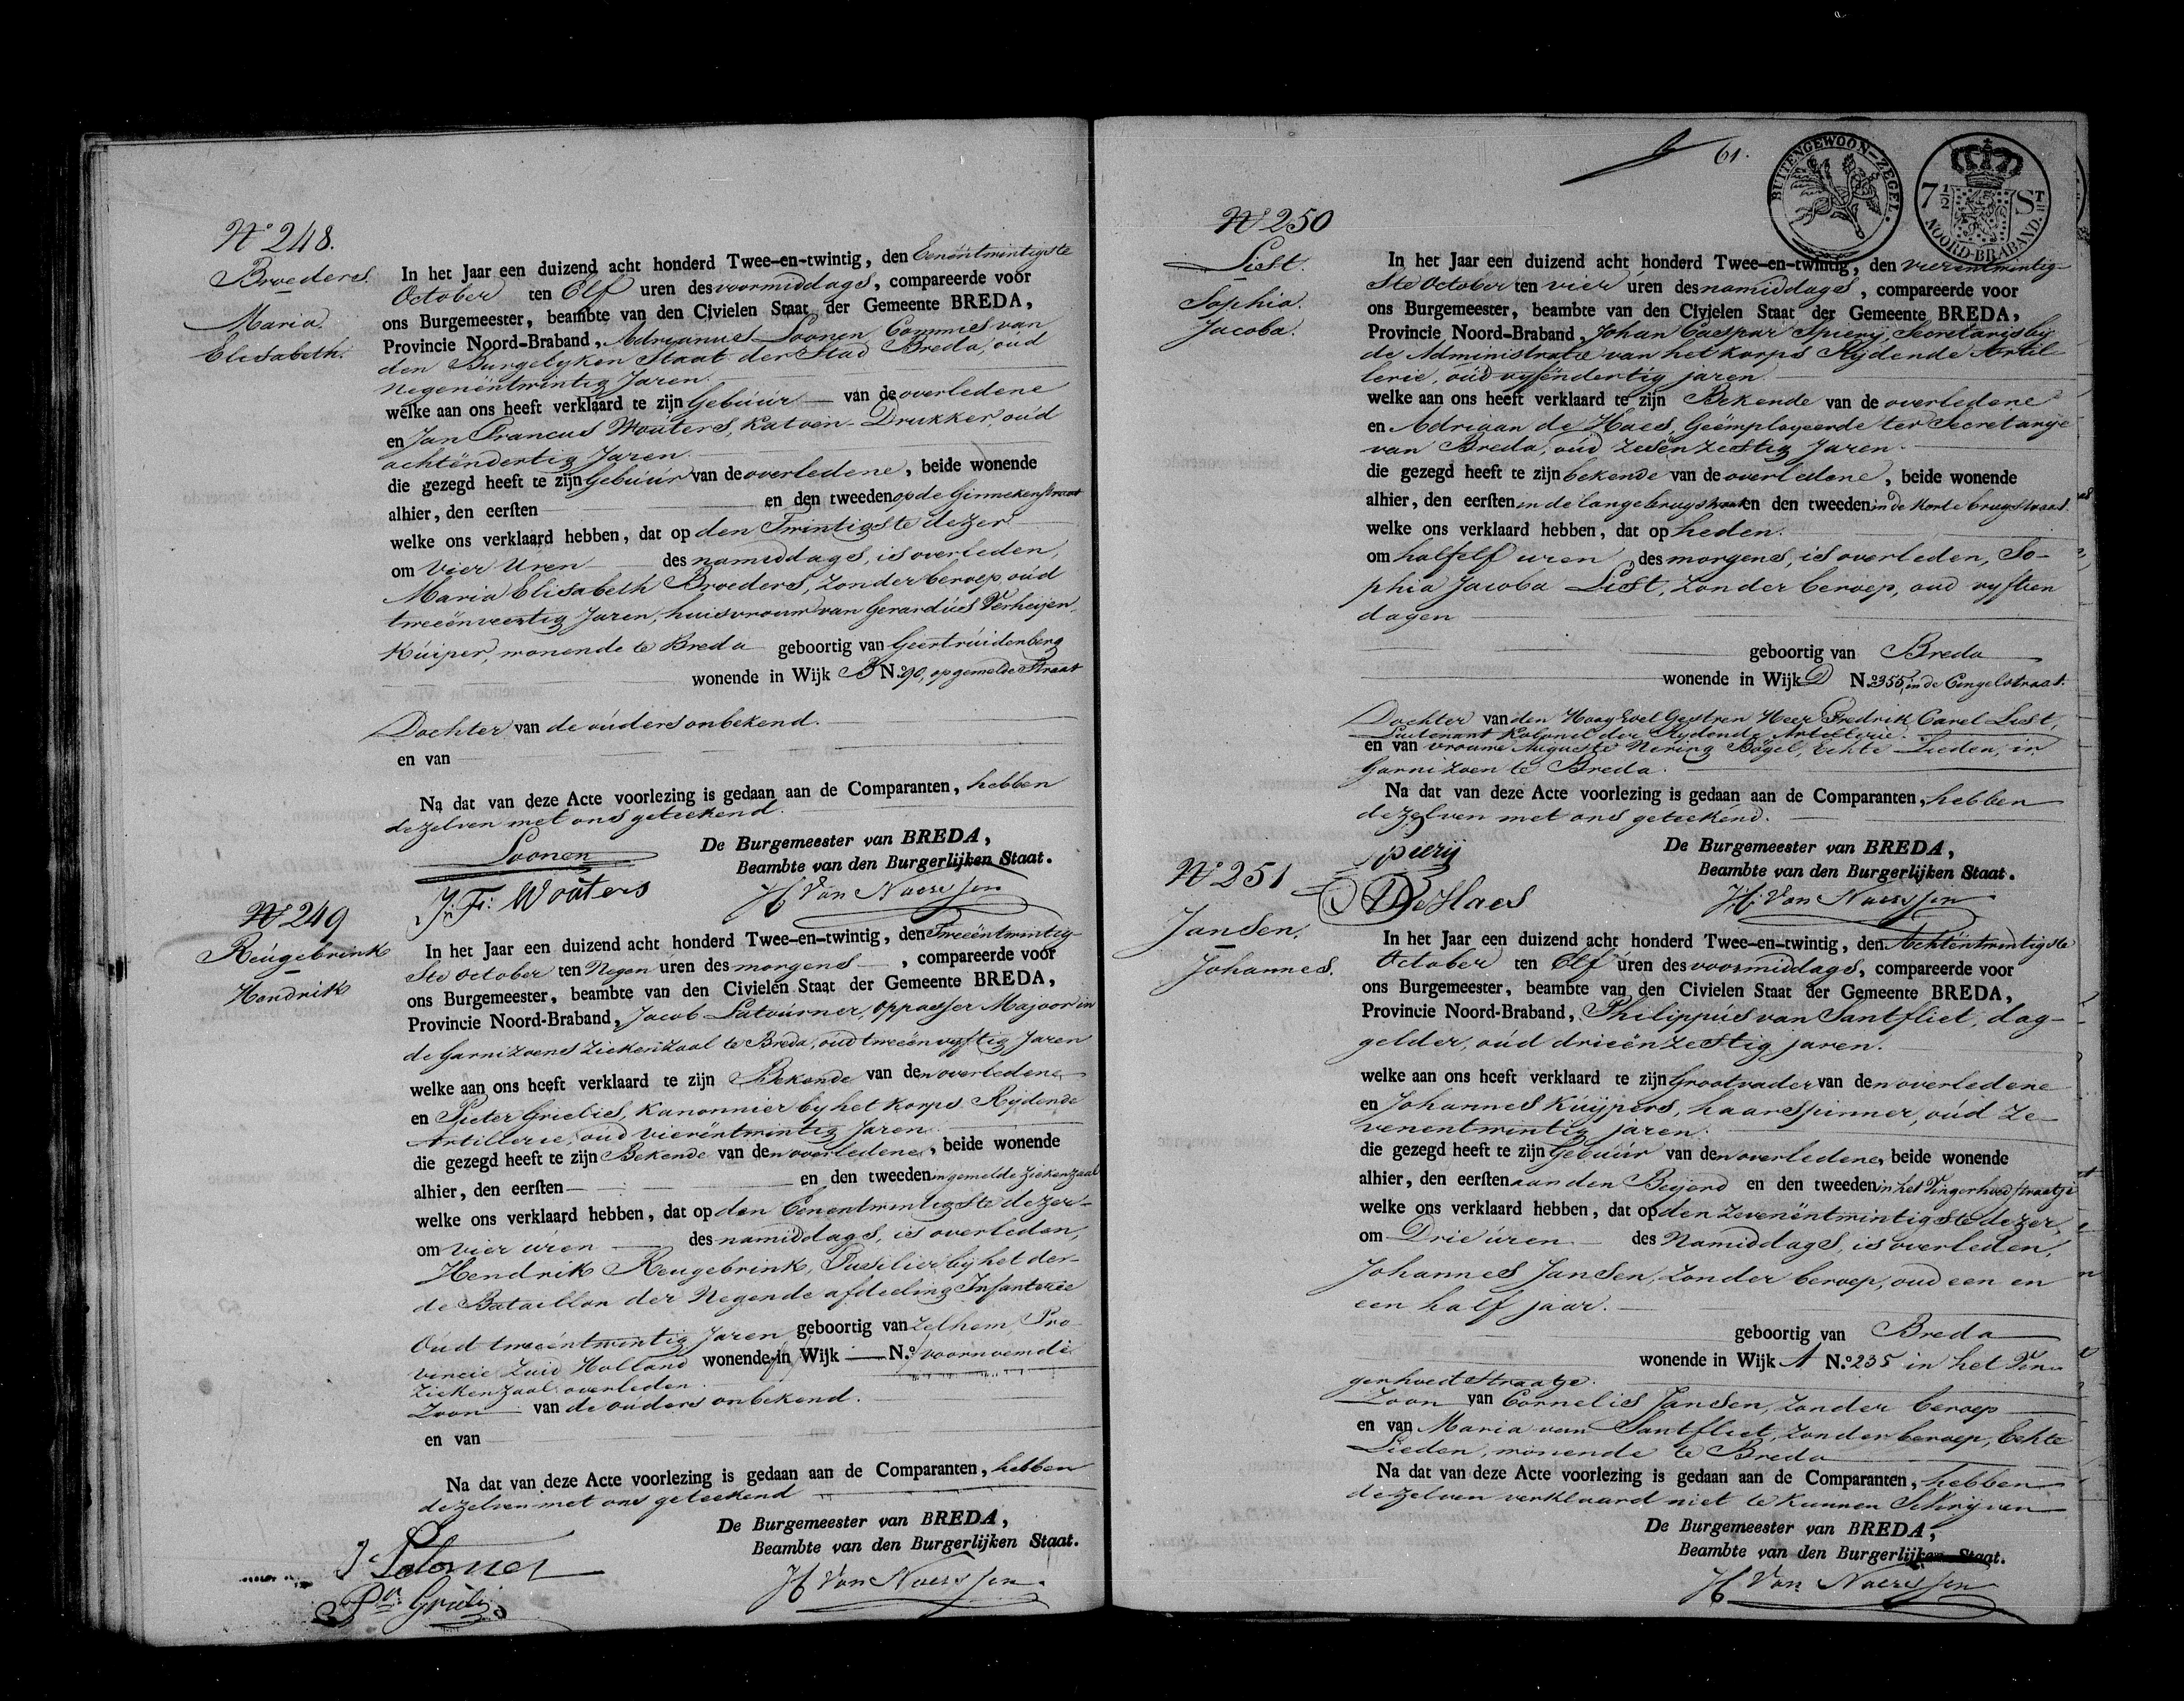 Nº 248.
Broeders.
Maria
Elisabeth.
In het Jaar een duizend acht honderd Twee-en-twintig, den Eenentwintigste
October ten Elf uren des voormiddags, compareerde voor
ons Burgemeester, beambte van den Civielen Staat der Gemeente BREDA,
Provincie Noord-Braband, Adrianus Loonen Commies van
den Burgelyken Staat der Stad Breda, oud
Negenëntwintig Jaren.
welke aan ons heeft verklaard te zijn Gebuur van de overledene
en Jan Francus Wouters, Katoen-Drukker, oud
achtëndertig Jaren
die gezegd heeft te zijn Gebúúr van de overledene, beide wonende
alhier, den eersten en den tweeden op de Ginnekenstraat
welke ons verklaard hebben, dat op den Twintigste dezer
om Vier Uren des namiddags, is overleden,
Maria Elisabeth Broeders, zonder beroep, oud
tweeënveertig Jaren, huisvrouw van Gerardús Verheijen
Kúiper, wonende te Breda geboortig van Geertrúidenberg
wonende in Wijk B N.º 90, op gemelde Straat
Dochter van de oúders onbekend.
en van
Na dat van deze Acte voorlezing is gedaan aan de Comparanten, hebben
dezelven met ons geteekend.
De Burgemeester van BREDA,
Beambte van den Burgerlijken Staat.
Loonen
J: F: Wouters
H Van Naerssen
Nº 249
Reúgebrink
Hendrik
In het Jaar een duizend acht honderd Twee-en-twintig, den Tweeëntwintig-
ste October ten Negen uren des morgens, compareerde voor
ons Burgemeester, beambte van den Civielen Staat der Gemeente BREDA,
Provincie Noord-Braband, Jacob Latoúrner, oppasser Majoor in
de Garnizoens Ziekenzaal te Breda, oud tweeënvyftig Jaren
welke aan ons heeft verklaard te zijn Bekende van den overledene
en Pieter Grielies, Kanonnier by het Korps Rijdende
Artillerie, oud vierëntwintig Jaren.
die gezegd heeft te zijn Bekende van den overledene, beide wonende
alhier, den eersten en den tweeden in gemelde ziekenzaal
welke ons verklaard hebben, dat op den Eenentwintigste dezer
om vier uren des namiddags, is overleden,
Hendrik Reugebrink, Fusilier bij het der-
de Bataillon der Negende afdeeling Infanterie
Oud tweeëntwintig Jaren geboortig van Zelhem, Pro-
vincie Zuid Holland wonende in Wijk N.º voornoemde
Ziekenzaal overleden.
Zoon van de oúders onbekend.
en van
Na dat van deze Acte voorlezing is gedaan aan de Comparanten, hebben
dezelven met ons geteekend
De Burgemeester van BREDA,
Beambte van den Burgerlijken Staat.
H Van Naerssen
61.
BUITENGEWOON-ZEGEL.
7 1/2 ST
NOORD-BRABAND.
Nº 250
List.
Sophia.
Jacoba.
In het Jaar een duizend acht honderd Twee-en-twintig, den vierentwintig-
ste October ten vier uren des namiddags, compareerde voor
ons Burgemeester, beambte van den Civielen Staat der Gemeente BREDA,
Provincie Noord-Braband, Johan Caspar Spierij, Secretaris bij
de Administratie van het Korps Rijdende Artil-
lerie, oud vyfëndertig jaren
welke aan ons heeft verklaard te zijn Bekende van de overledene
en Adriaan de Haes, Geëmployeerde ter Secretarije
van Breda, oud Zesënzestig Jaren.
die gezegd heeft te zijn bekende van de overledene, beide wonende
alhier, den eersten in de lange brugstraat en den tweeden in de Korte brugstraat
welke ons verklaard hebben, dat op heden.
om half elf uren des morgens, is overleden, So-
phia Jacoba List, zonder beroep, oud vyftien
dagen
geboortig van Breda
wonende in Wijk D N.º 355, in de Cingelstraat.
Dochter van den Hoog Edel Gestren Heer Fredrik Carel List,
Luitenant Kolonel der Rydende Artillerie.
en van vrouwe Auguste Nering Bögel, Echte Lieden, in
Garnizoen te Breda.
Na dat van deze Acte voorlezing is gedaan aan de Comparanten, hebben
dezelven met ons geteekend.
De Burgemeester van BREDA,
Beambte van den Burgerlijken Staat.
Spierij
A De Haes
H. Van Naerssen
Nº 251
Jansen.
Johannes.
In het Jaar een duizend acht honderd Twee-en-twintig, den Achtëntwintigste
October ten Elf uren des voormiddags, compareerde voor
ons Burgemeester, beambte van den Civielen Staat der Gemeente BREDA,
Provincie Noord-Braband, Philippús van Santfliet, dag-
gelder, oúd drieënzestig jaren.
welke aan ons heeft verklaard te zijn Grootvader van den overledene
en Johannes Kúijpers, haarspinner, oúd ze-
venentwintig jaren.
die gezegd heeft te zijn Gebúúr van den overledene, beide wonende
alhier, den eersten aan den Beijerd en den tweeden in het Vingerhoedstraatje
welke ons verklaard hebben, dat op den Zevenëntwintigste dezer,
om Drie úren des Namiddags, is overleden,
Johannes Jansen, zonder beroep, oud een en
een half jaar.
geboortig van Breda
wonende in Wijk A N.º 235 in het Vin-
gerhoedstraatje.
Zoon van Cornelis Jansen, zonder beroep
en van Maria van Santfliet, zonder beroep, Echte
Lieden, wonende te Breda
Na dat van deze Acte voorlezing is gedaan aan de Comparanten, hebben
dezelven verklaard niet te kunnen Schrijven
De Burgemeester van BREDA,
Beambte van den Burgerlijken Staat.
H Van Naerssen